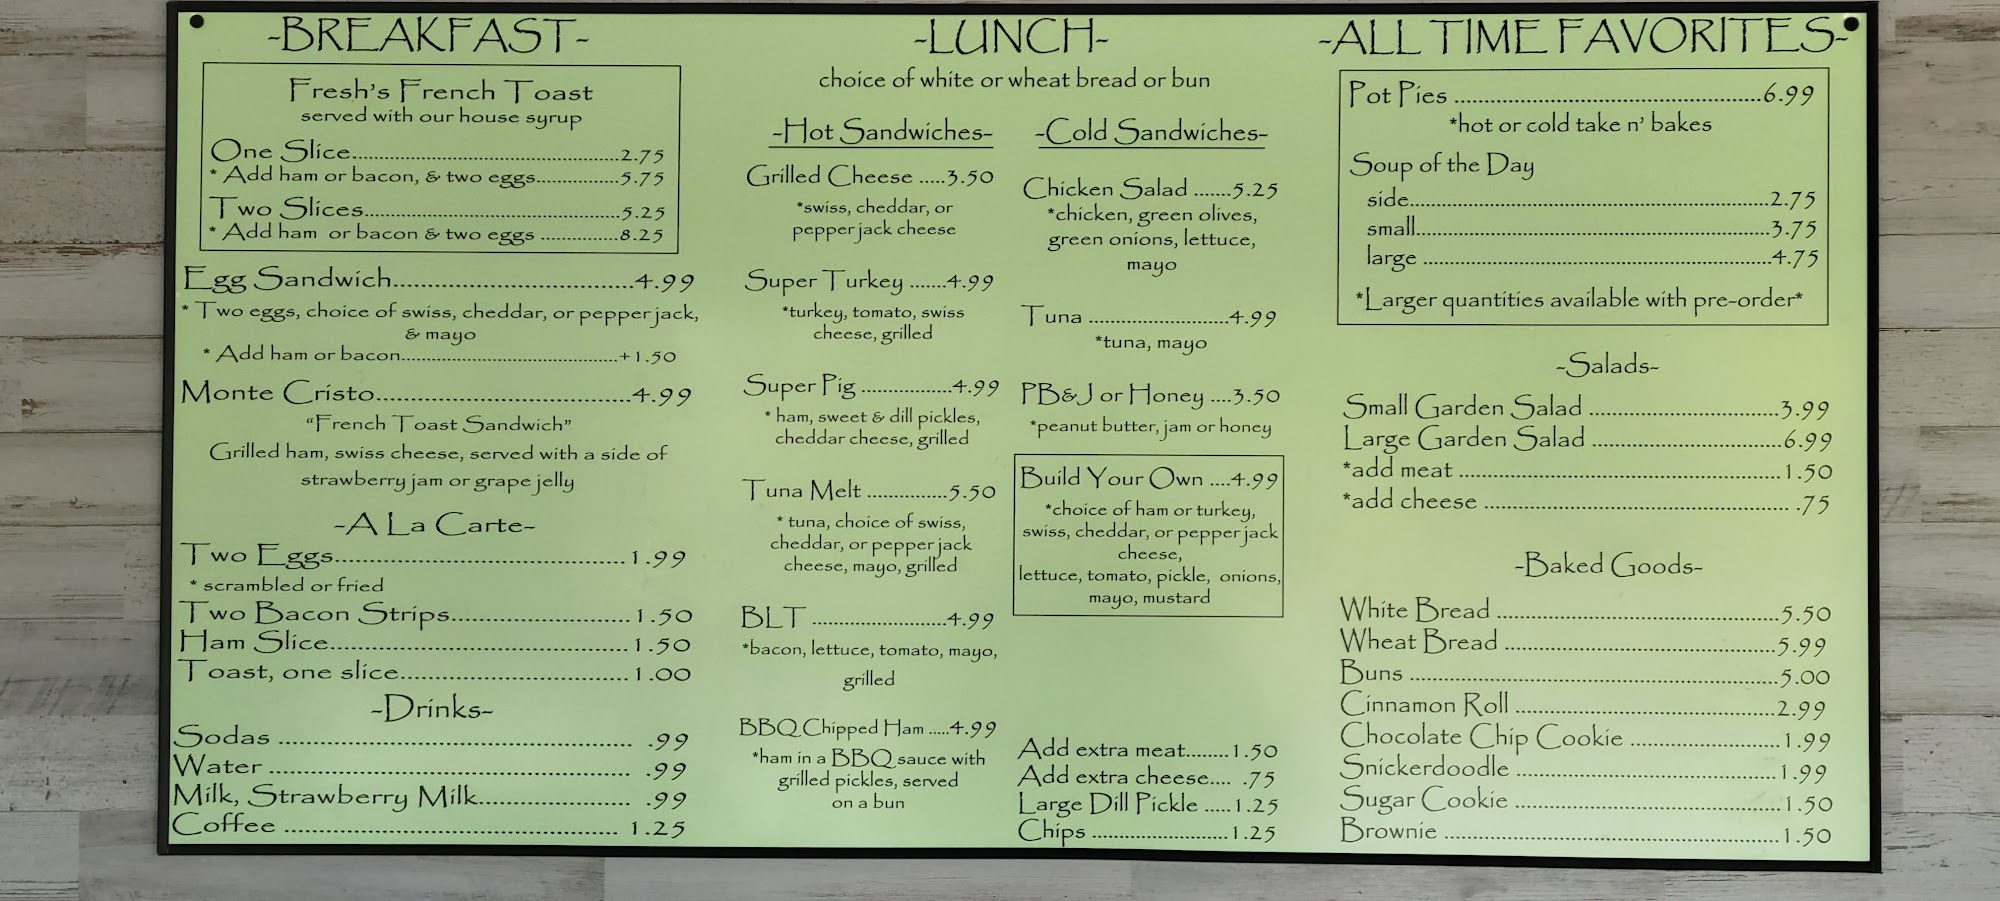 -BREAKFAST-
Fresh's French Toast
served with our house syrup
One Slice..........2.75
* Add ham or bacon, & two eggs..........5.75
Two Slices..........5.25
* Add ham or bacon & two eggs ..........8.25
Egg Sandwich..........4.99
* Two eggs, choice of swiss, cheddar, or pepper jack,
& mayo
* Add ham or bacon..........+1.50
Monte Cristo..........4.99
"French Toast Sandwich"
Grilled ham, swiss cheese, served with a side of
strawberry jam or grape jelly
-A La Carte-
Two Eggs..........1.99
* scrambled or fried
Two Bacon Strips..........1.50
Ham Slice..........1.50
Toast, one slice..........1.00
-Drinks-
Sodas .......... .99
Water .......... .99
Milk, Strawberry Milk.......... .99
Coffee .......... 1.25
-LUNCH-
choice of white or wheat bread or bun
-Hot Sandwiches-
Grilled Cheese .....3.50
*swiss, cheddar, or
pepper jack cheese
Super Turkey .......4.99
*turkey, tomato, swiss
cheese, grilled
Super Pig ..........4.99
* ham, sweet & dill pickles,
cheddar cheese, grilled
Tuna Melt ..........5.50
* tuna, choice of swiss,
cheddar, or pepper jack
cheese, mayo, grilled
BLT ..........4.99
*bacon, lettuce, tomato, mayo,
grilled
BBQ Chipped Ham .....4.99
*ham in a BBQ sauce with
grilled pickles, served
on a bun
-Cold Sandwiches-
Chicken Salad .......5.25
*chicken, green olives,
green onions, lettuce,
mayo
Tuna ..........4.99
*tuna, mayo
PB&J or Honey ....3.50
*peanut butter, jam or honey
Build Your Own ....4.99
*choice of ham or turkey,
swiss, cheddar, or pepper jack
cheese,
lettuce, tomato, pickle, onions,
mayo, mustard
Add extra meat........1.50
Add extra cheese.... .75
Large Dill Pickle .....1.25
Chips ..........1.25
-ALL TIME FAVORITES-
Pot Pies ..........6.99
*hot or cold take n' bakes
Soup of the Day
side..........2.75
small..........3.75
large ..........4.75
*Larger quantities available with pre-order*
-Salads-
Small Garden Salad ..........3.99
Large Garden Salad ..........6.99
*add meat ..........1.50
*add cheese .......... .75
-Baked Goods-
White Bread ..........5.50
Wheat Bread ..........5.99
Buns ..........5.00
Cinnamon Roll ..........2.99
Chocolate Chip Cookie ..........1.99
Snickerdoodle ..........1.99
Sugar Cookie ..........1.50
Brownie ..........1.50